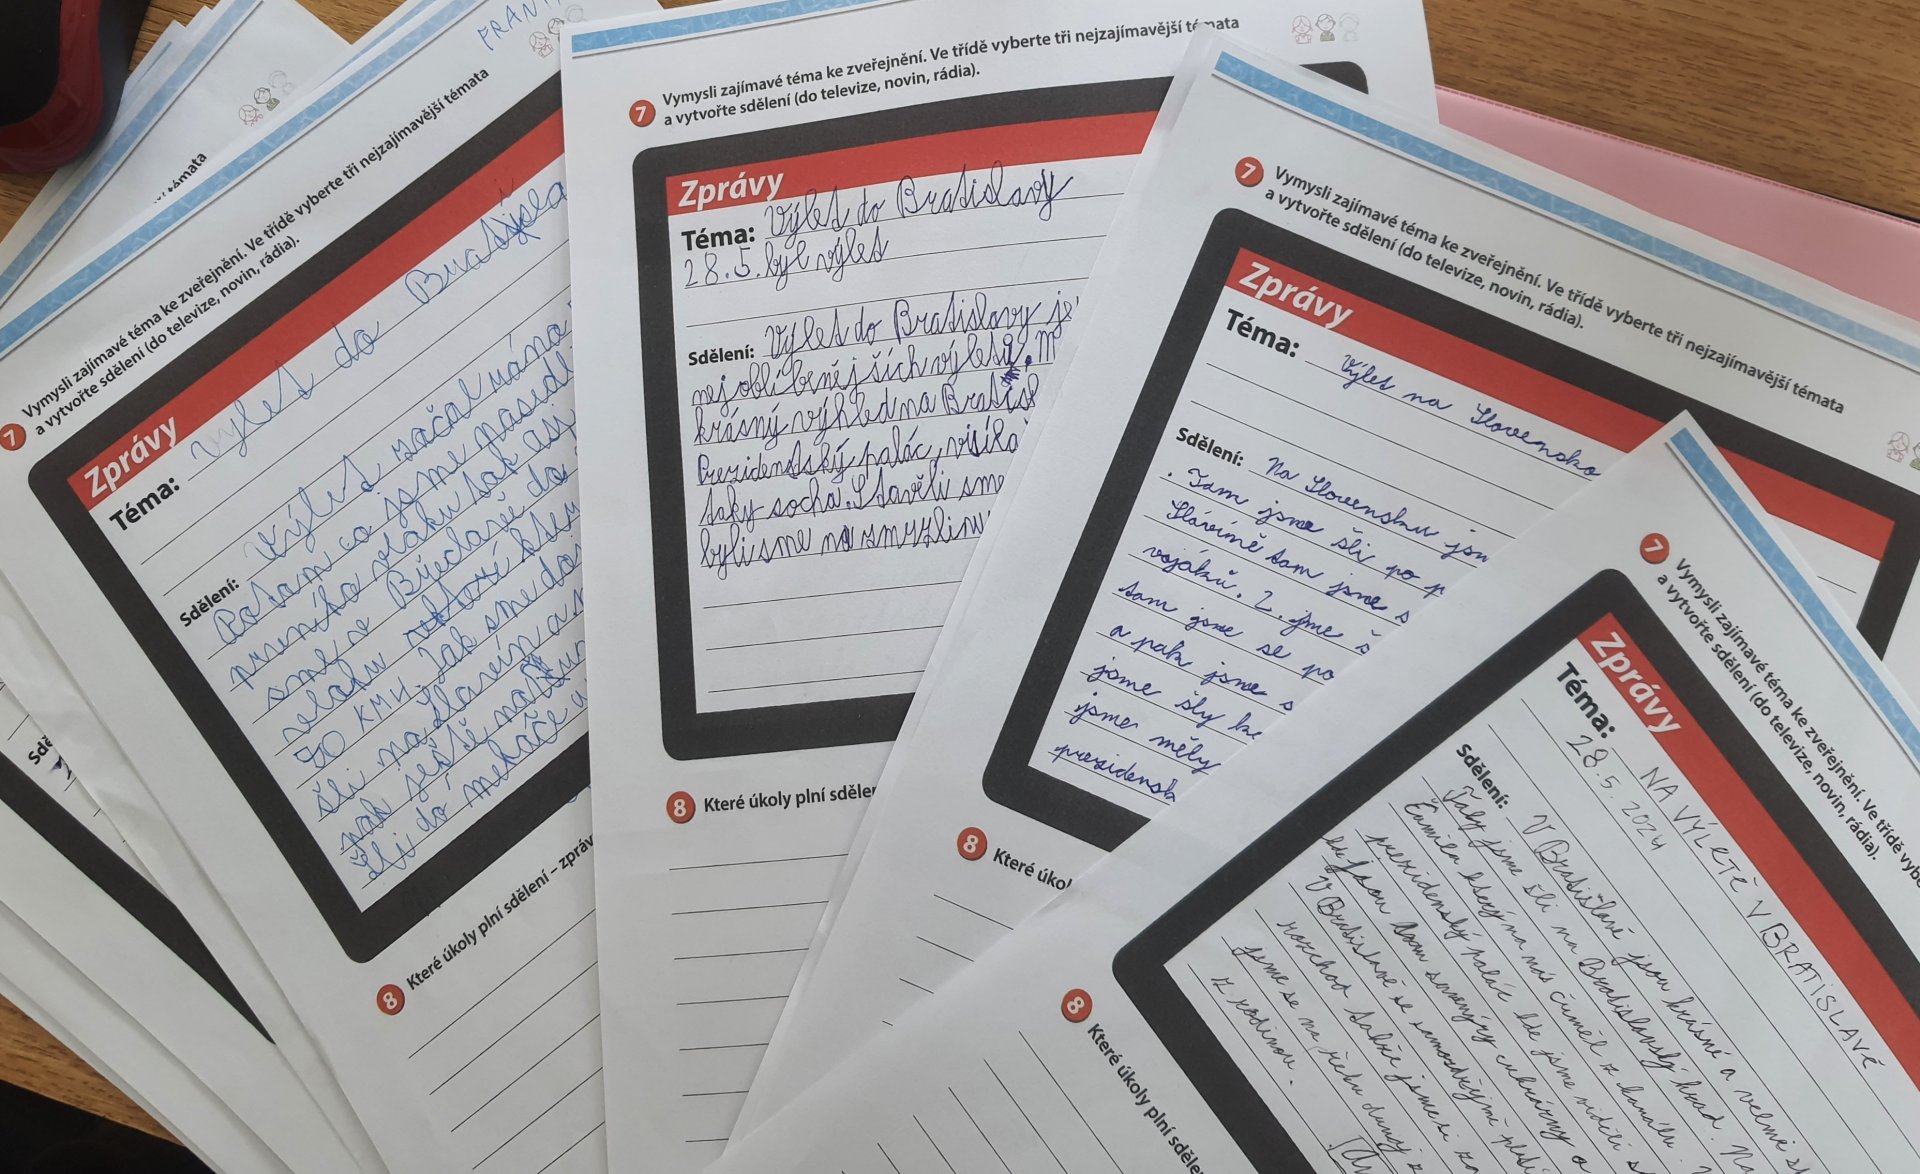 FRANT
7 Vymysli zajímavé téma ke zveřejnění. Ve třídě vyberte tři nejzajímavější témata
a vytvořte sdělení (do televize, novin, rádia).
Zprávy
Téma: Výlet do
Sdělení: Výlet začal ráno
Potom co jsme nasedli
prvního vlaku tak asi
sme v Břeclavě do
vlaku
šli na Slavín a
pak ještě na
šli do mekáče
8 Které úkoly plní sdělení – zpráv
témata
Sdě
7 Vymysli zajímavé téma ke zveřejnění. Ve třídě vyberte tři nejzajímavější témata
a vytvořte sdělení (do televize, novin, rádia).
Zprávy
Téma: Výlet do Bratislavy
28.5. byl výlet
Sdělení: Výlet do Bratislavy je
nejoblíbenějších výletů. M
krásný výhled na Bratisl
Prezidentský palác, viděla
taky socha. Stavěli sme
byli sme na zmrzlinu
8 Které úkoly plní sdělen
7 Vymysli zajímavé téma ke zveřejnění. Ve třídě vyberte tři nejzajímavější témata
a vytvořte sdělení (do televize, novin, rádia).
Zprávy
Téma: Výlet na Slovensko
Sdělení: Na Slovensku jsm
. Tam jsme šli po p
Slávíně tam jsme s
vojáků. 2. jme š
tam jsme se po
a pak jsme s
jsme šly ke
jsme měly
prezidensk
8 Které úkol
7 Vymysli zajímavé téma ke zveřejnění. Ve třídě vybe
a vytvořte sdělení (do televize, novin, rádia).
Zprávy
Téma: NA VÝLETĚ V BRATISLAVĚ
28.5. 2024
Sdělení: V Bratislavě jsou krásné a velmi
Taky jsme šli na Bratislavský hrad. N
Čumila který na nás čuměl z kanálu.
prezidenský palác kde jsme viděli
jsou tam suvenýry cukrárny a
V Bratislavě se samozdřejmí
rozchod takže jsme si
jsme se na řeku dunaj z
z rodinou.
8 Které úkoly plní sděle